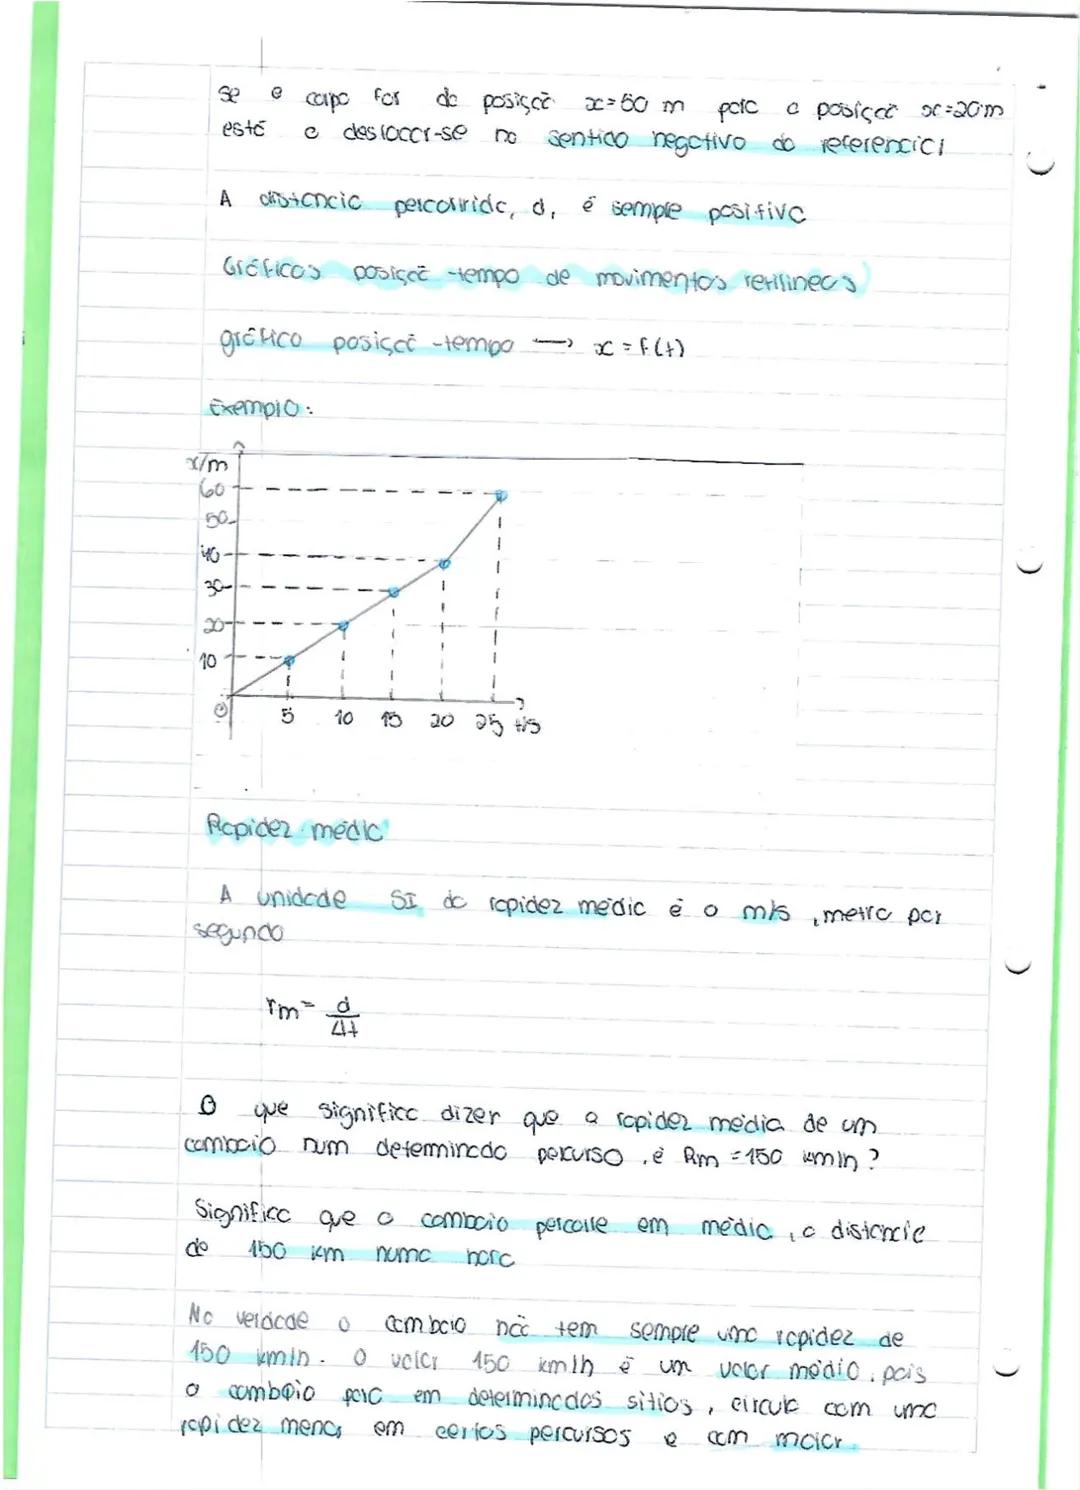 se o corpo for da posição x=60 m para a posição x=20m
está a deslocar-se no sentido negativo do referencial
A distância percorrida, d, é sempre positiva
Gráficos posição-tempo de movimentos retilíneos
gráfico posição-tempo → x = f(t)
Exemplo:
x/m
60
50
40
30
20
10
0
5 10 15 20 25 t/s
Rapidez média
A unidade SI da rapidez média é o m/s, metro por
segundo
rm = d/Δt
O que significa dizer que a rapidez média de um
comboio num determinado percurso é Rm = 150 km/h?
Significa que o comboio percorre em média, a distância
de 150 km numa hora
Na verdade o comboio não tem sempre uma rapidez de
150 km/h. O valor 150 km/h é um valor médio, pois
o comboio para em determinados sítios, circula com uma
rapidez menor em certos percursos e com maior